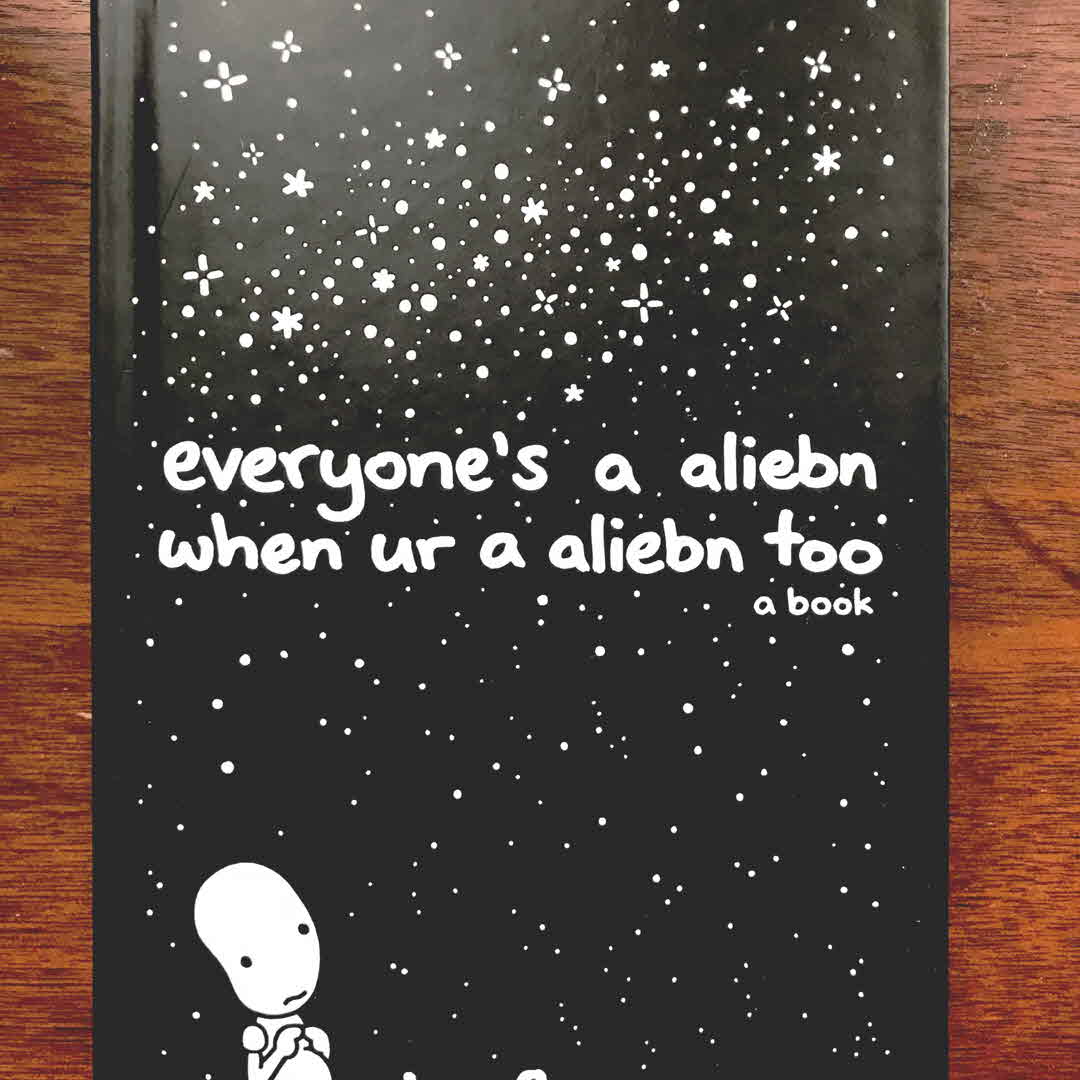 everyone's a aliebn
when ur a aliebn too
a book